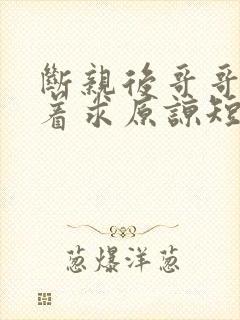 斷親後哥哥
着求原諒短
葱爆洋葱